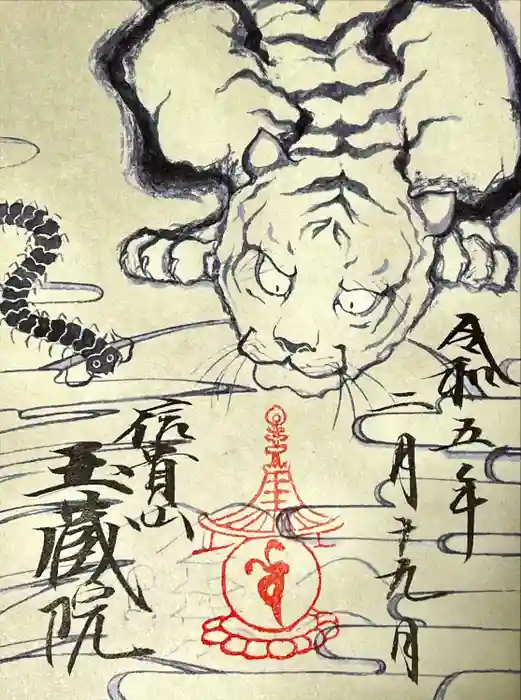 令和五年
二月十九日
信貴山
玉蔵院